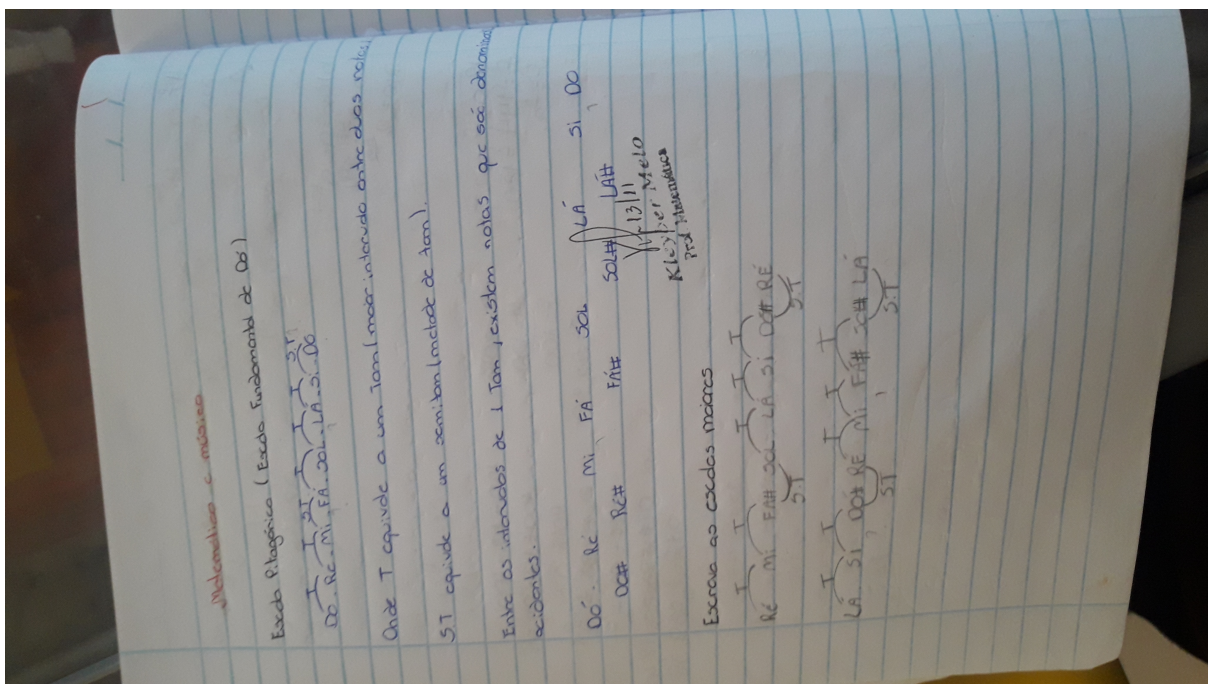 Matematica e música
Escala Pitagórica (Escala Fundamental de Dó)
T T ST T T T ST
DÓ. RÉ. Mi. FÁ. SOL. LÁ. Si. DÓ
Onde T equivale a um Tom (maior intervalo entre duas notas)
ST equivale a um semitom (metade de tom).
Entre os intervalos de 1 Tom, existem notas que são denominadas
acidentes.
DÓ. RÉ Mi FÁ SOL LÁ Si DO
DO# RÉ# FÁ# SOL# LÁ#
13/11
Kleyber Melo
Prof. Matemática
Escreva as escalas maiores
T T T T T
RÉ Mi FÁ# SOL LÁ Si DO# RÉ
S.T S.T
T T T T T
LÁ Si DO# RÉ Mi FÁ# SOL# LÁ
ST S.T